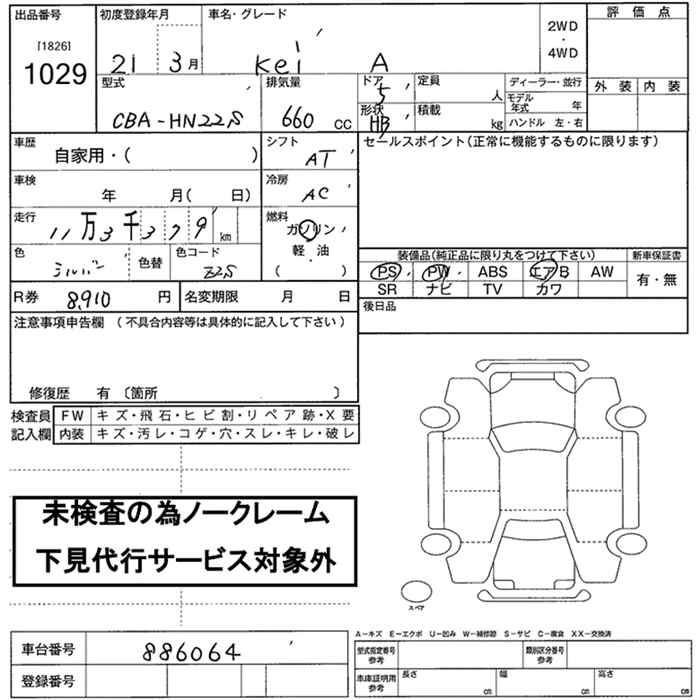 出品番号 初度登録年月 車名・グレード 評価点
[1826]
1029
21 3月 Kei A
2WD
・
4WD
型式 排気量 ドア 5 定員 人 ディーラー・並行 外装 内装
CBA-HN22S 660 CC 形状 HB 積載 kg モデル年式 年
ハンドル 左・右
車歴 シフト セールスポイント(正常に機能するものに限ります)
自家用・( ) AT
車検 冷房
年 月( 日) AC
走行 燃料
11万3千379km ガソリン
軽・油
( )
色 シルバー 色替 色コード Z2S
装備品(純正品に限り丸をつけて下さい) 新車保証書
PS PW ABS エアB AW 有・無
SR ナビ TV カワ
R券 8,910 円 名変期限 月 日 後日品
注意事項申告欄 (不具合内容等は具体的に記入して下さい)
修復歴 有 〔箇所 〕
検査員 FW キズ・飛石・ヒビ割・リペア跡・X要
記入欄 内装 キズ・汚レ・コゲ・穴・スレ・キレ・破レ
未検査の為ノークレーム
下見代行サービス対象外
スペア
A-キズ E-エクボ U-凹み W-補修跡 S-サビ C-腐食 XX-交換済
車台番号 886064 型式指定番号 参考 類別区分番号 参考
登録番号 車庫証明用 参考 長さ cm 幅 cm 高さ cm